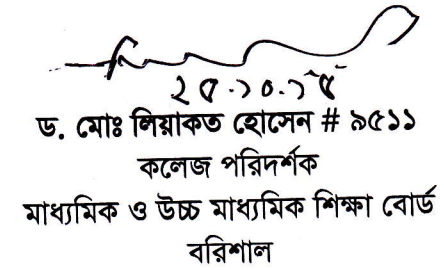 ড. মোঃ লিয়াকত হোসেন # ৯৫১১
কলেজ পরিদর্শক
মাধ্যমিক ও উচ্চ মাধ্যমিক শিক্ষা বোর্ড
বরিশাল